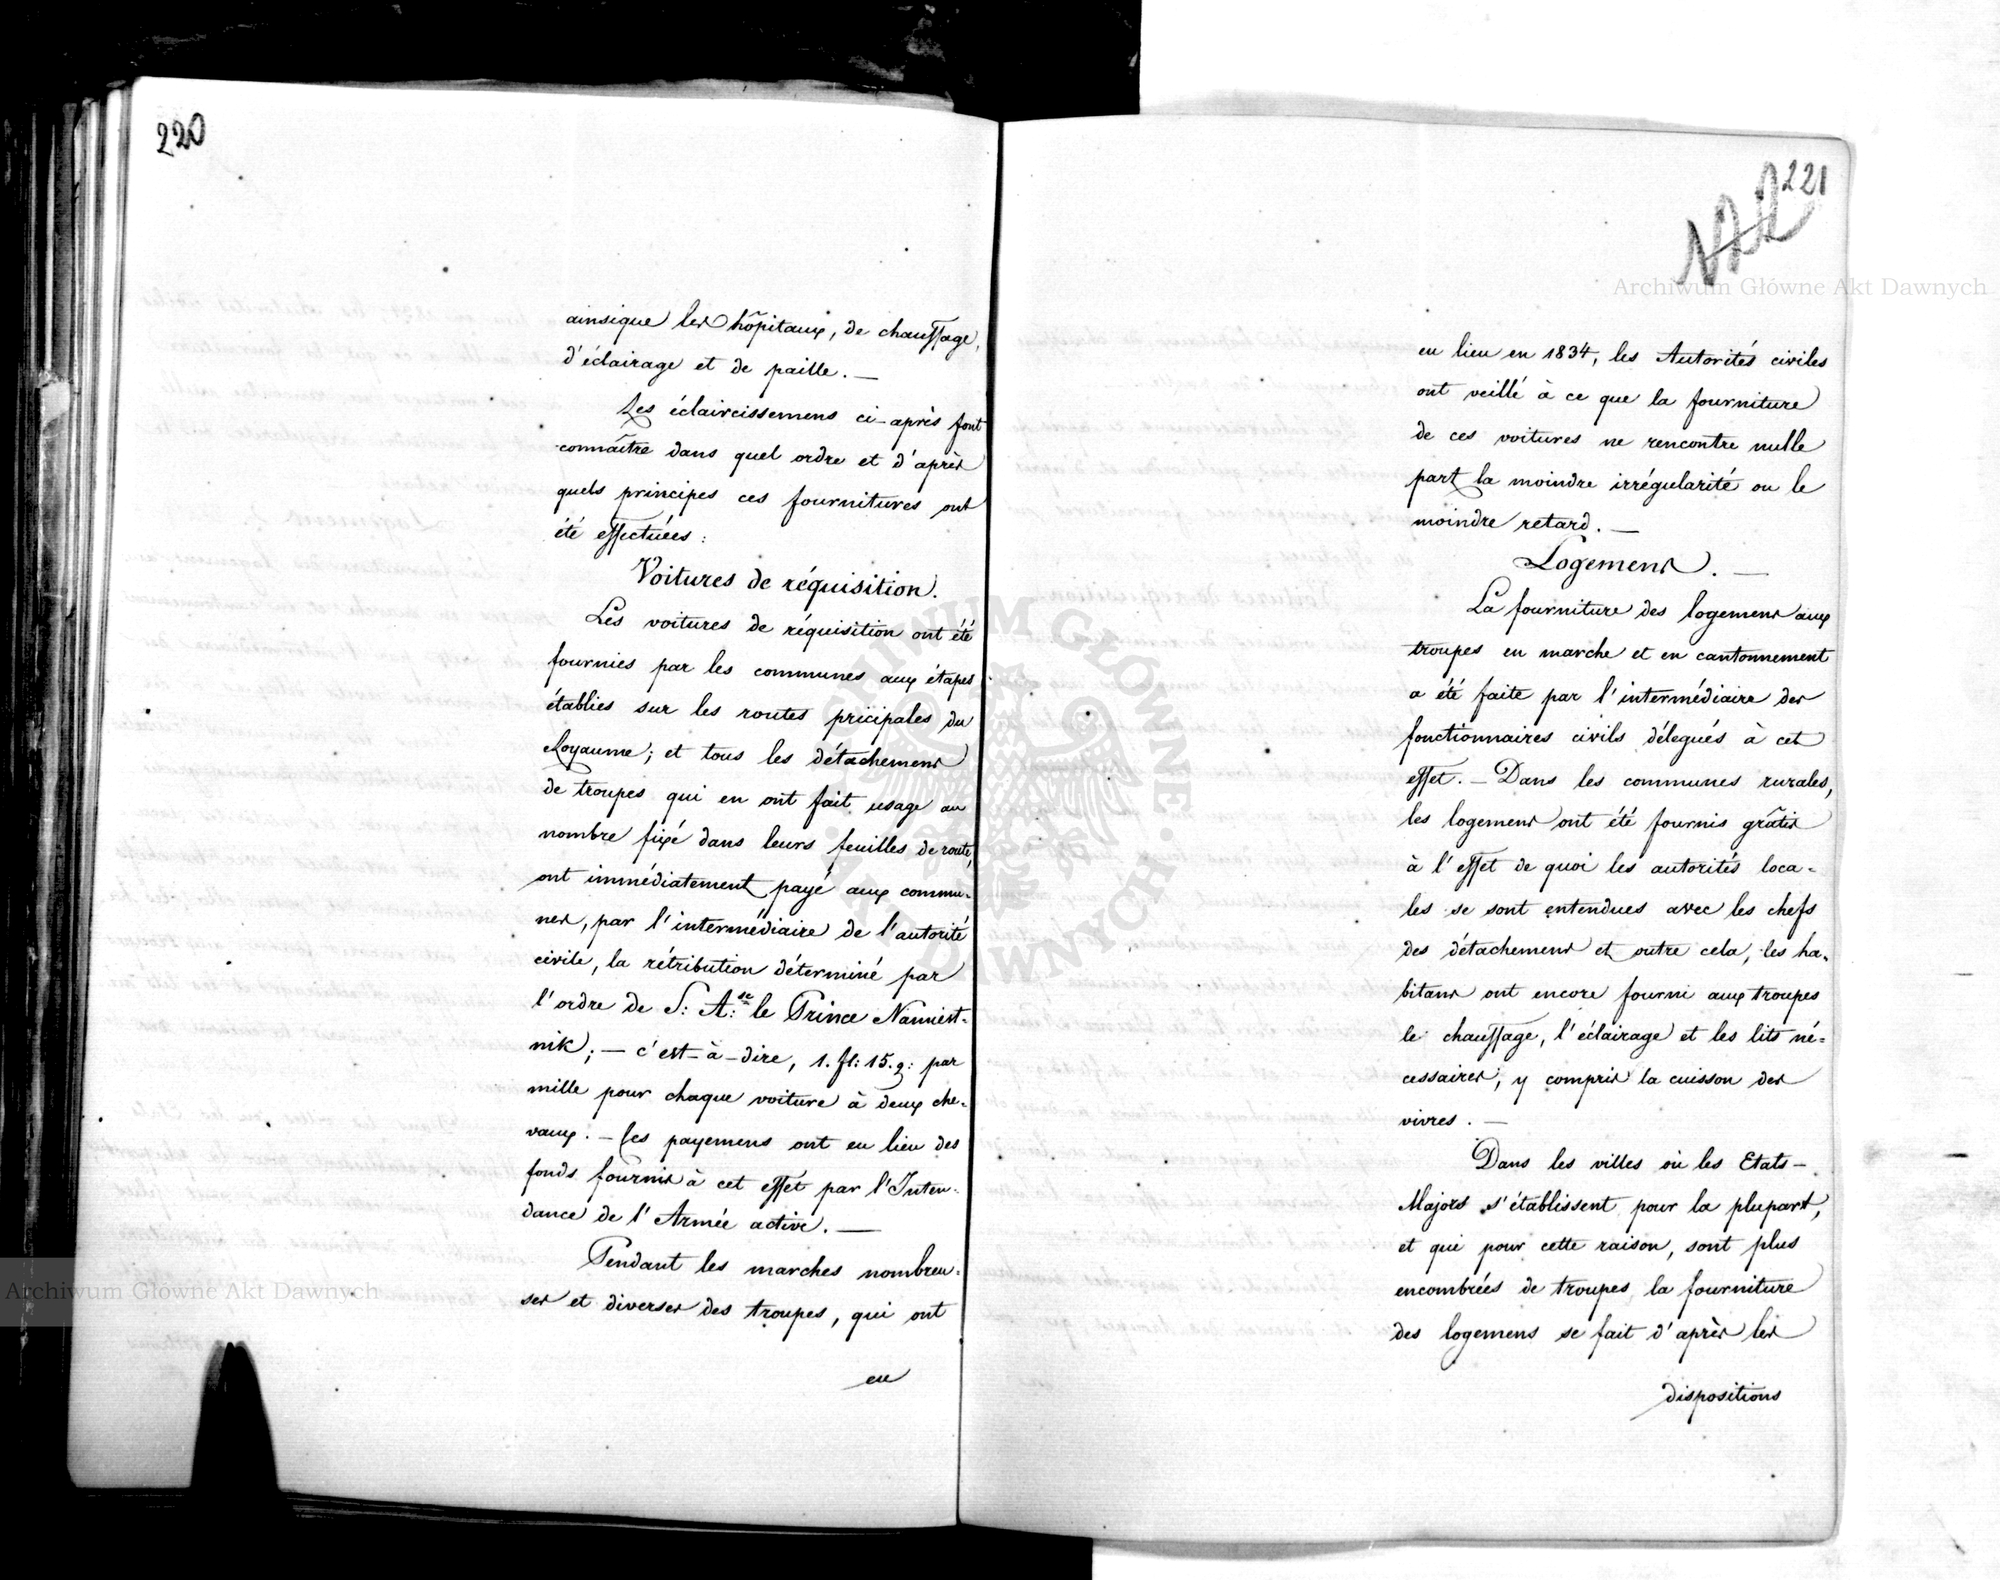 220
ainsique les hôpitaux, de chauffage,
d'éclairage et de paille. —
Les éclaircissemens ci-après font
connaître dans quel ordre et d'après
quels principes ces fournitures ont
été effectuées :
Voitures de réquisition.
Les voitures de réquisition ont été
fournies par les communes aux étapes
établies sur les routes pricipales du
Royaume; et tous les détachemens
de troupes qui en ont fait usage au
nombre fixé dans leurs feuilles de route,
ont immédiatement payé aux commu-
nes, par l'intermédiaire de l'autorité
civile, la rétribution déterminé par
l'ordre de S: A: se le Prince Namiest-
nik; — c'est-à-dire, 1. fl: 15. g: par
mille pour chaque voiture à deux che-
vaux. — Ces payemens ont eu lieu des
fonds fournis à cet effet par l'Inten-
dance de l'Armée active. —
Pendant les marches nombreu-
ses et diverses des troupes, qui ont
eu
221
eu lieu en 1834, les Autorités civiles
ont veillé à ce que la fourniture
de ces voitures ne rencontre nulle
part la moindre irrégularité ou le
moindre retard. —
Logemens. —
La fourniture des logemens aux
troupes en marche et en cantonnement
a été faite par l'intermédiaire des
fonctionnaires civils délegués à cet
effet. — Dans les communes rurales,
les logemens ont été fournis grâtis
à l'effet de quoi les autorités loca-
les se sont entendues avec les chefs
des détachemens et outre cela, les ha-
bitans ont encore fourni aux troupes
le chauffage, l'éclairage et les lits né-
cessaires, y compris la cuisson des
vivres. —
Dans les villes où les Etats-
Majors s'établissent pour la plupart,
et qui pour cette raison, sont plus
encombrées de troupes, la fourniture
des logemens se fait d'après les
dispositions
Archiwum Główne Akt Dawnych
Archiwum Główne Akt Dawnych
ARCHIWUM GŁÓWNE AKT DAWNYCH